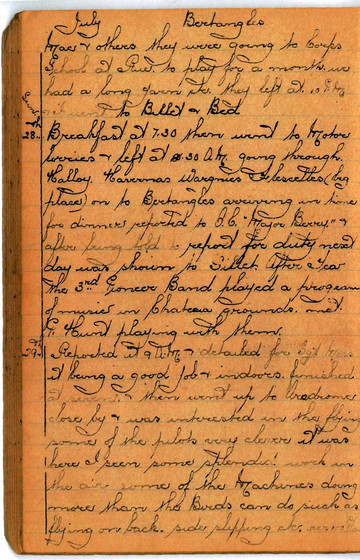 July Bertangles
Mac & others they were going to Corps
School at Rue. to play for a month. we
had a long yarn etc. they left at 10 P.M.
went to Billet & Bed
Sunday
28th Breakfast at 7.30 then went to Motor
lorries & left at 8.30 A.M. going through
Halloy. Havernas Wargnies Flesselles (big
place) on to Bertangles arriving in time
for dinner reported to O.C. "Major Berry" &
after being told to report for duty next
day was shown to Billet. After Tea
the 3rd Pioneer Band played a program
of music in Chateau grounds. met
G. Hunt playing with them.
29th Reported at 9 A.M. & detailed for Sgt Mess
it being a good job & indoors. finished
at seven. & then went up to Areodrome
close by & was interested in the flying
some of the pilots very clever it was
here I seen some splendid work in
the air some of the Machines doing
more than the Birds can do such as
flying on back. side slipping etc.